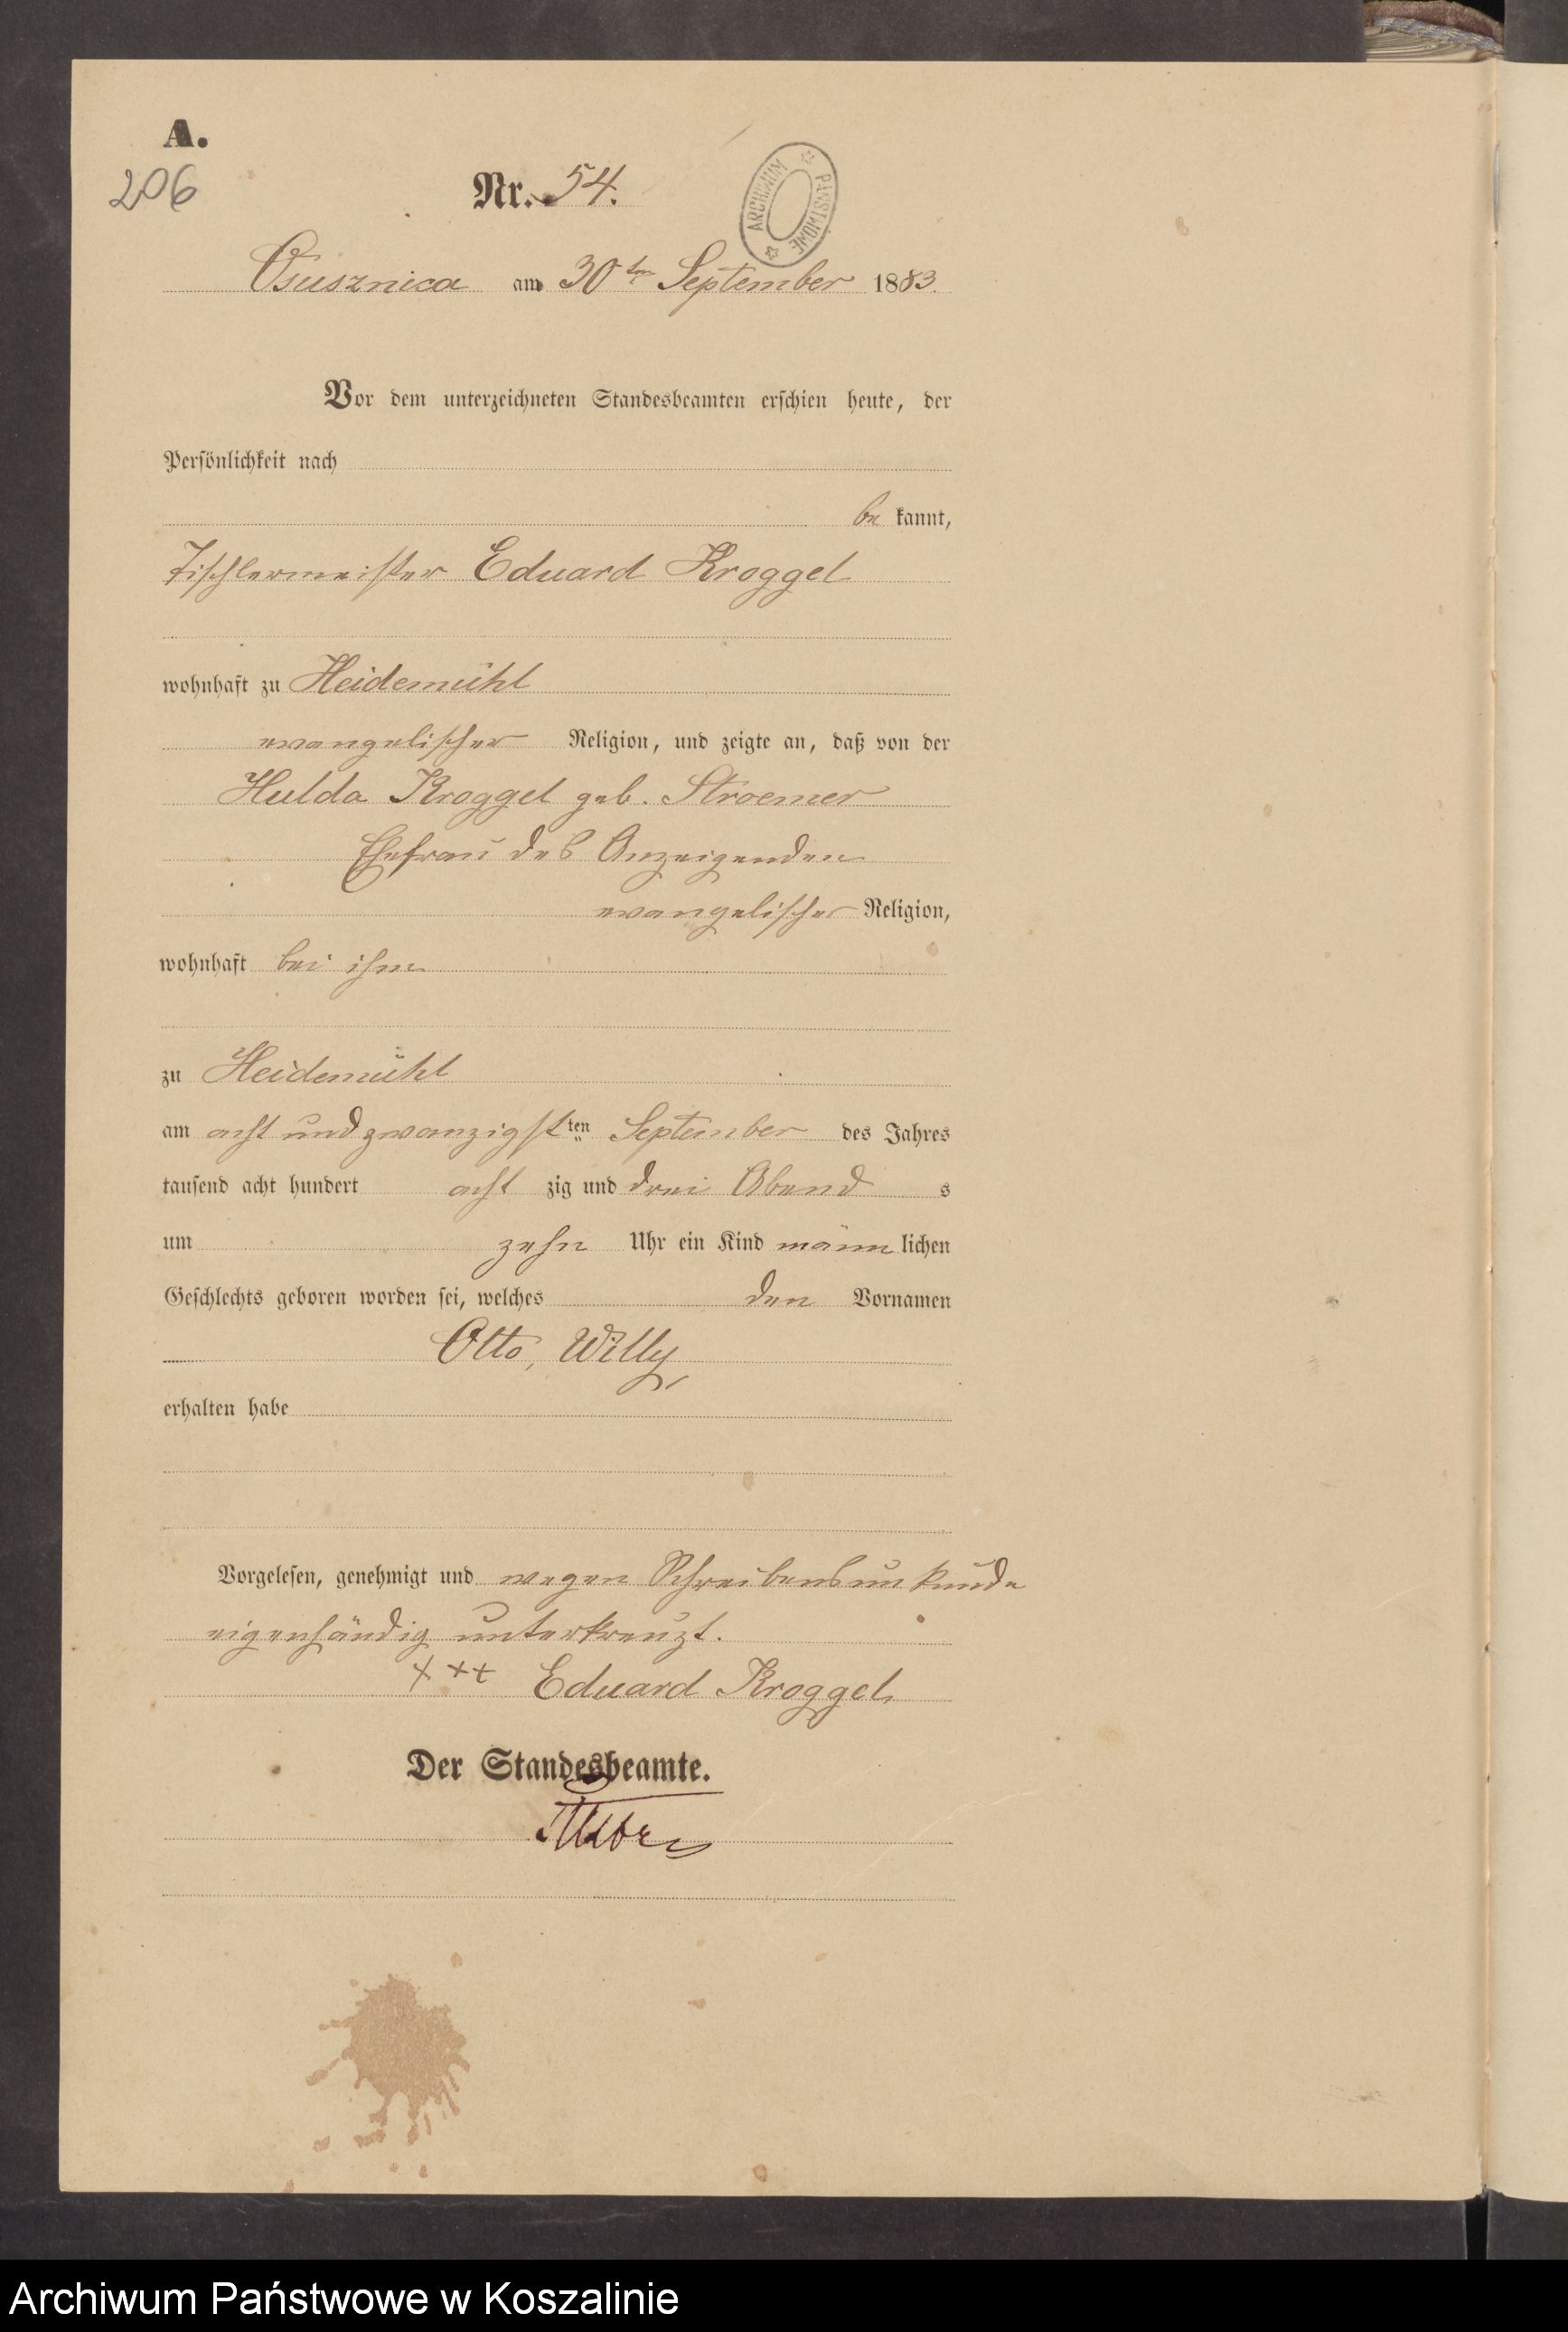 A.
206
Nr. 54.
ARCHIWUM PAŃSTWOWE
Osusznica am 30ten September 1883.
Vor dem unterzeichneten Standesbeamten erschien heute, der
Persönlichkeit nach
be kannt,
Tischlermeister Eduard Kroggel
wohnhaft zu Heidemühl
evangelischer Religion, und zeigte an, daß von der
Hulda Kroggel geb. Stroemer
Ehefrau des Anzeigenden
evangelischer Religion,
wohnhaft bei ihm
zu Heidemühl
am acht und zwanzigsten September des Jahres
tausend acht hundert acht zig und drei Abend s
um zehn Uhr ein Kind männ lichen
Geschlechts geboren worden sei, welches den Vornamen
Otto, Willy,
erhalten habe
Vorgelesen, genehmigt und wegen Schreibensunkunde
eigenhändig unterkreuzt.
+ + + Eduard Kroggel
Der Standesbeamte.
Archiwum Państwowe w Koszalinie